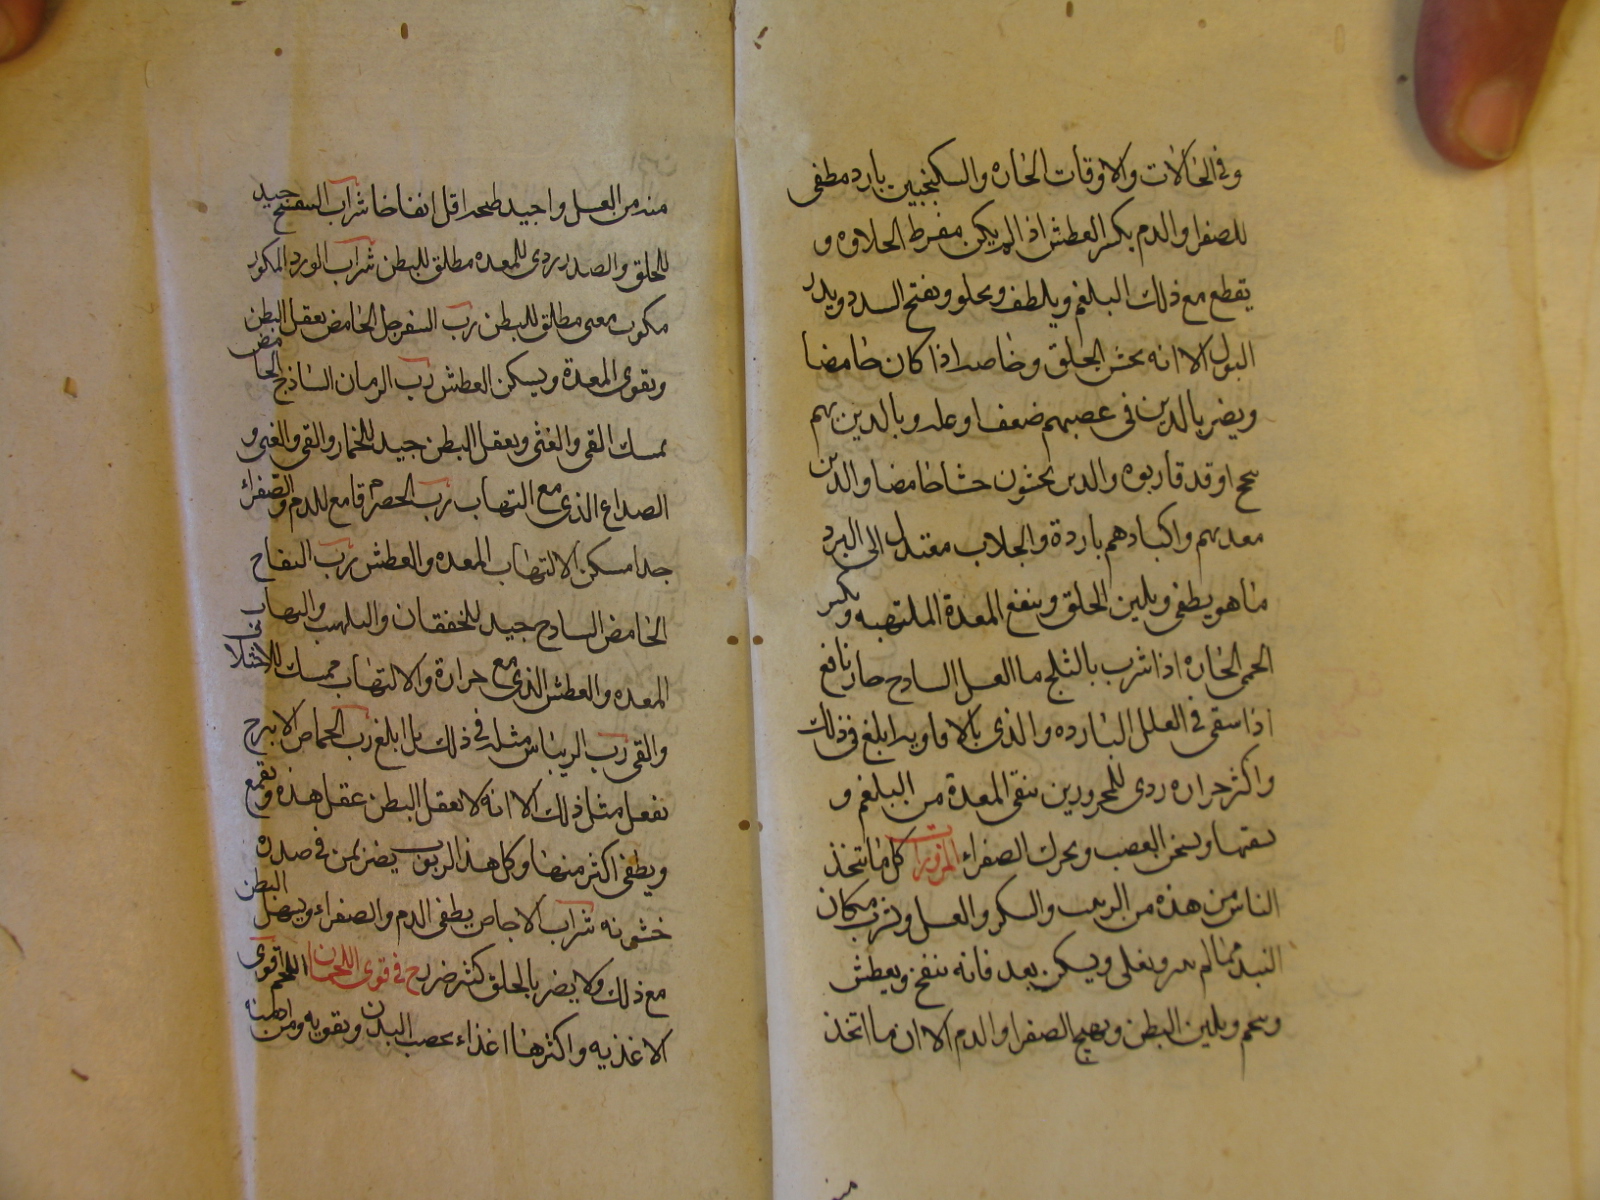 وفى الحالات والاوقات الحاره والسكنجبين بارد مطفى
للصفرا والدم يكسر العطش اذا لم يكن مفرط الحلاوه و
يقطع مع ذلك البلغم ويلطف ويجلو ويفتح السدد ويدر
البول الا انه يخشن الحلق وخاصه اذا كان حامضا
ويضر بالذين فى عصبهم ضعفا وعله وبالذين بهم
سحج او قد قاربوه والذين يجشون جشا حامضا والذين
معدهم واكبادهم باردة والجلاب معتدل الى البرد
ما هو يطفى ويلين الحلق وينفع المعدة الملتهبه ويكسر
الحمى الحاره اذا شرب بالثلج ما العسل الساذج حار نافع
اذا سقى فى العلل البارده والذى بالافاويه ابلغ فى ذلك
واكثر حراره ردى للمحرورين ينقى المعدة من البلغم و
ويسخن العصب ويحرك الصفراء المزورات كل ما يتخذ
الناس من هذه من الزبيب والسكر والعسل ويشرب مكان
النبيذ مما لم ويغلى ويسكن بعد فانه ينفخ ويعطش
ويلين البطن ويهيج الصفرا والدم الا ان ما اتخذ
منه من العسل واجيد طبخه اقل انفاخا شراب البنفسج جيد
للحلق والصدر ردى للمعده مطلق للبطن شراب الورد المكرر
مطلق للبطن رب السفرجل الحامض يعقل البطن
ويقوى المعدة ويسكن العطش رب الرمان الساذج الحامض
يمسك القى والغثى ويعقل البطن جيد للخمار والقى والغثى و
الصداع الذى مع التهاب رب الحصرم قامع للدم والصفراء
جدا مسكن لالتهاب المعده والعطش رب التفاح
الحامض الساذج جيد للخفقان والتلهب والتهاب
المعده والعطش الذى مع حرارة والالتهاب ممسك
والقى رب الريباس مثله فى ذلك بل ابلغ رب الحماض الاترج
يفعل مثل ذلك الا انه لا يعقل البطن عقل هذه ويقمع
ويطفى اكثر منها وكل هذه الربوب يضر بمن فى صدره
خشونه شراب الاجاص يطفى الدم والصفراء ويسهل البطن
مع ذلك ولا يضر بالحلق كثير ضرر ح فى قوى اللحمان اللحم اقوى
الاغذيه واكثرها اغذاء يخصب البدن ويقويه ومن